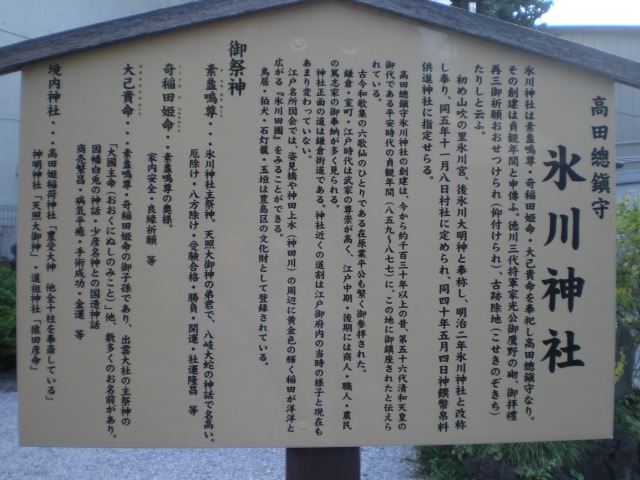 高田總鎭守
氷川神社
氷川神社は素盞鳴尊・奇稲田姫命・大己貴命を奉祀し高田總鎭守なり。
その創建は貞観年間と申傳ふ。徳川三代将軍家光公御鷹野の砌、御拝禮
再三御祈願おおせつけられ(仰付けられ)、古跡除地(こせきのぞきち)
たりしと云ふ。
初め山吹の里氷川宮、後氷川大明神と奉称し、明治二年氷川神社と改称
し奉り、同五年十一月八日村社に定められ、同四十年五月四日神饌幣帛料
供進神社に指定せらる。
高田總鎭守氷川神社の創建は、今から約千百三十年以上の昔、第五十六代清和天皇の
御代である平安時代の貞観年間(八五九〜八七七)に、この地に御鎮座されたと伝えら
れている。
古今和歌集の六歌仙のひとりである在原業平公も繁く御参拝された。
鎌倉・室町・江戸時代は武家の尊崇が高く、江戸中期・後期には商人・職人・農民
の篤志家の御奉納が多く見られる。
神社正面の道は鎌倉街道である。神社近くの道割は江戸御府内の当時の様子と現在も
あまり変わっていない。
江戸名所図会では、姿見橋や神田上水(神田川)の周辺に黄金色の輝く稲田が洋洋と
広がる『氷川田圃』をみることができる。
鳥居・狛犬・石灯籠・玉垣は豊島区の文化財として登録されている。
御祭神
素盞鳴尊・・・氷川神社主祭神。天照大御神の弟君で、八岐大蛇の神話で名高い。
厄除け・八方除け・受験合格・勝負・開運・社運隆昌 等
奇稲田姫命・・素盞鳴尊の奥様。
家内安全・良縁祈願 等
大己貴命・・・素盞鳴尊・奇稲田姫命の御子孫であり、出雲大社の主祭神の
「大国主命(おおくにぬしのみこと)」他、数多くのお名前があり。
因幡白兎の神話・少彦名神との国造神話
商売繁昌・病気平癒・手術成功・金運 等
境内神社・・・高田姫稲荷神社「豊受大神 他全十柱を奉斎している」
神明神社「天照大御神」・道祖神社「猿田彦命」